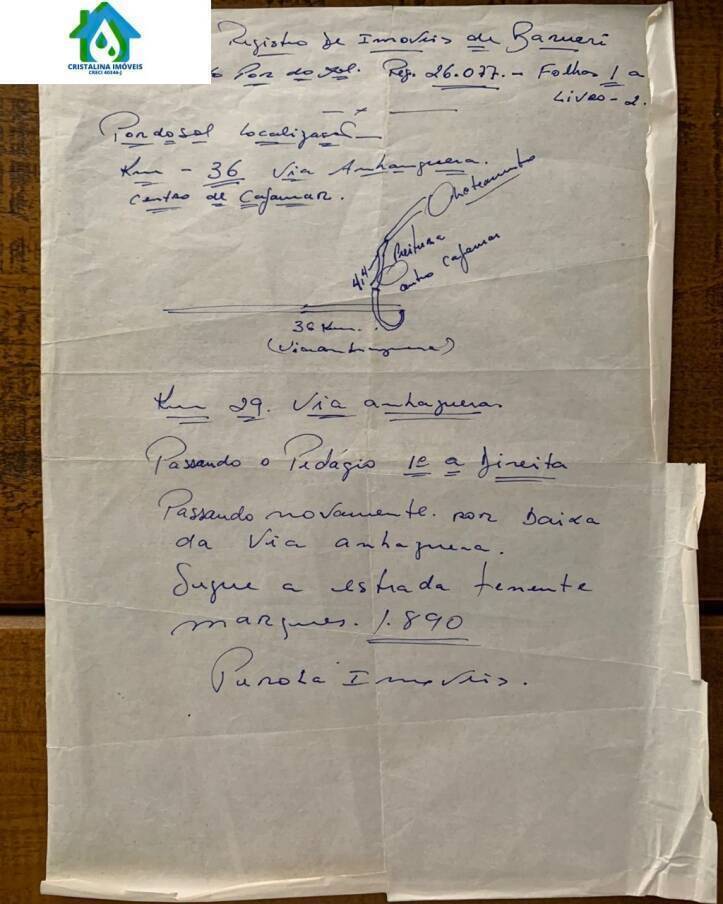 CRISTALINA IMÓVEIS
CRECI 40346-J
Registro de Imoveis de Barueri
Por do Sol. Reg. 26.077. - Folhas 1 a
Livro - 2.
Por do Sol Localização
Km - 36 Via Anhanguera.
Centro de Cajamar.
Loteamento
4,4
Cajamar
36 Km..
Km 29. Via anhagueras
Passando o Pedágio 1º a Direita
Passando novamente. por Baixa
da Via anhaguera.
Sugue a estrada tenente
marques. 1.890
Imoveis.